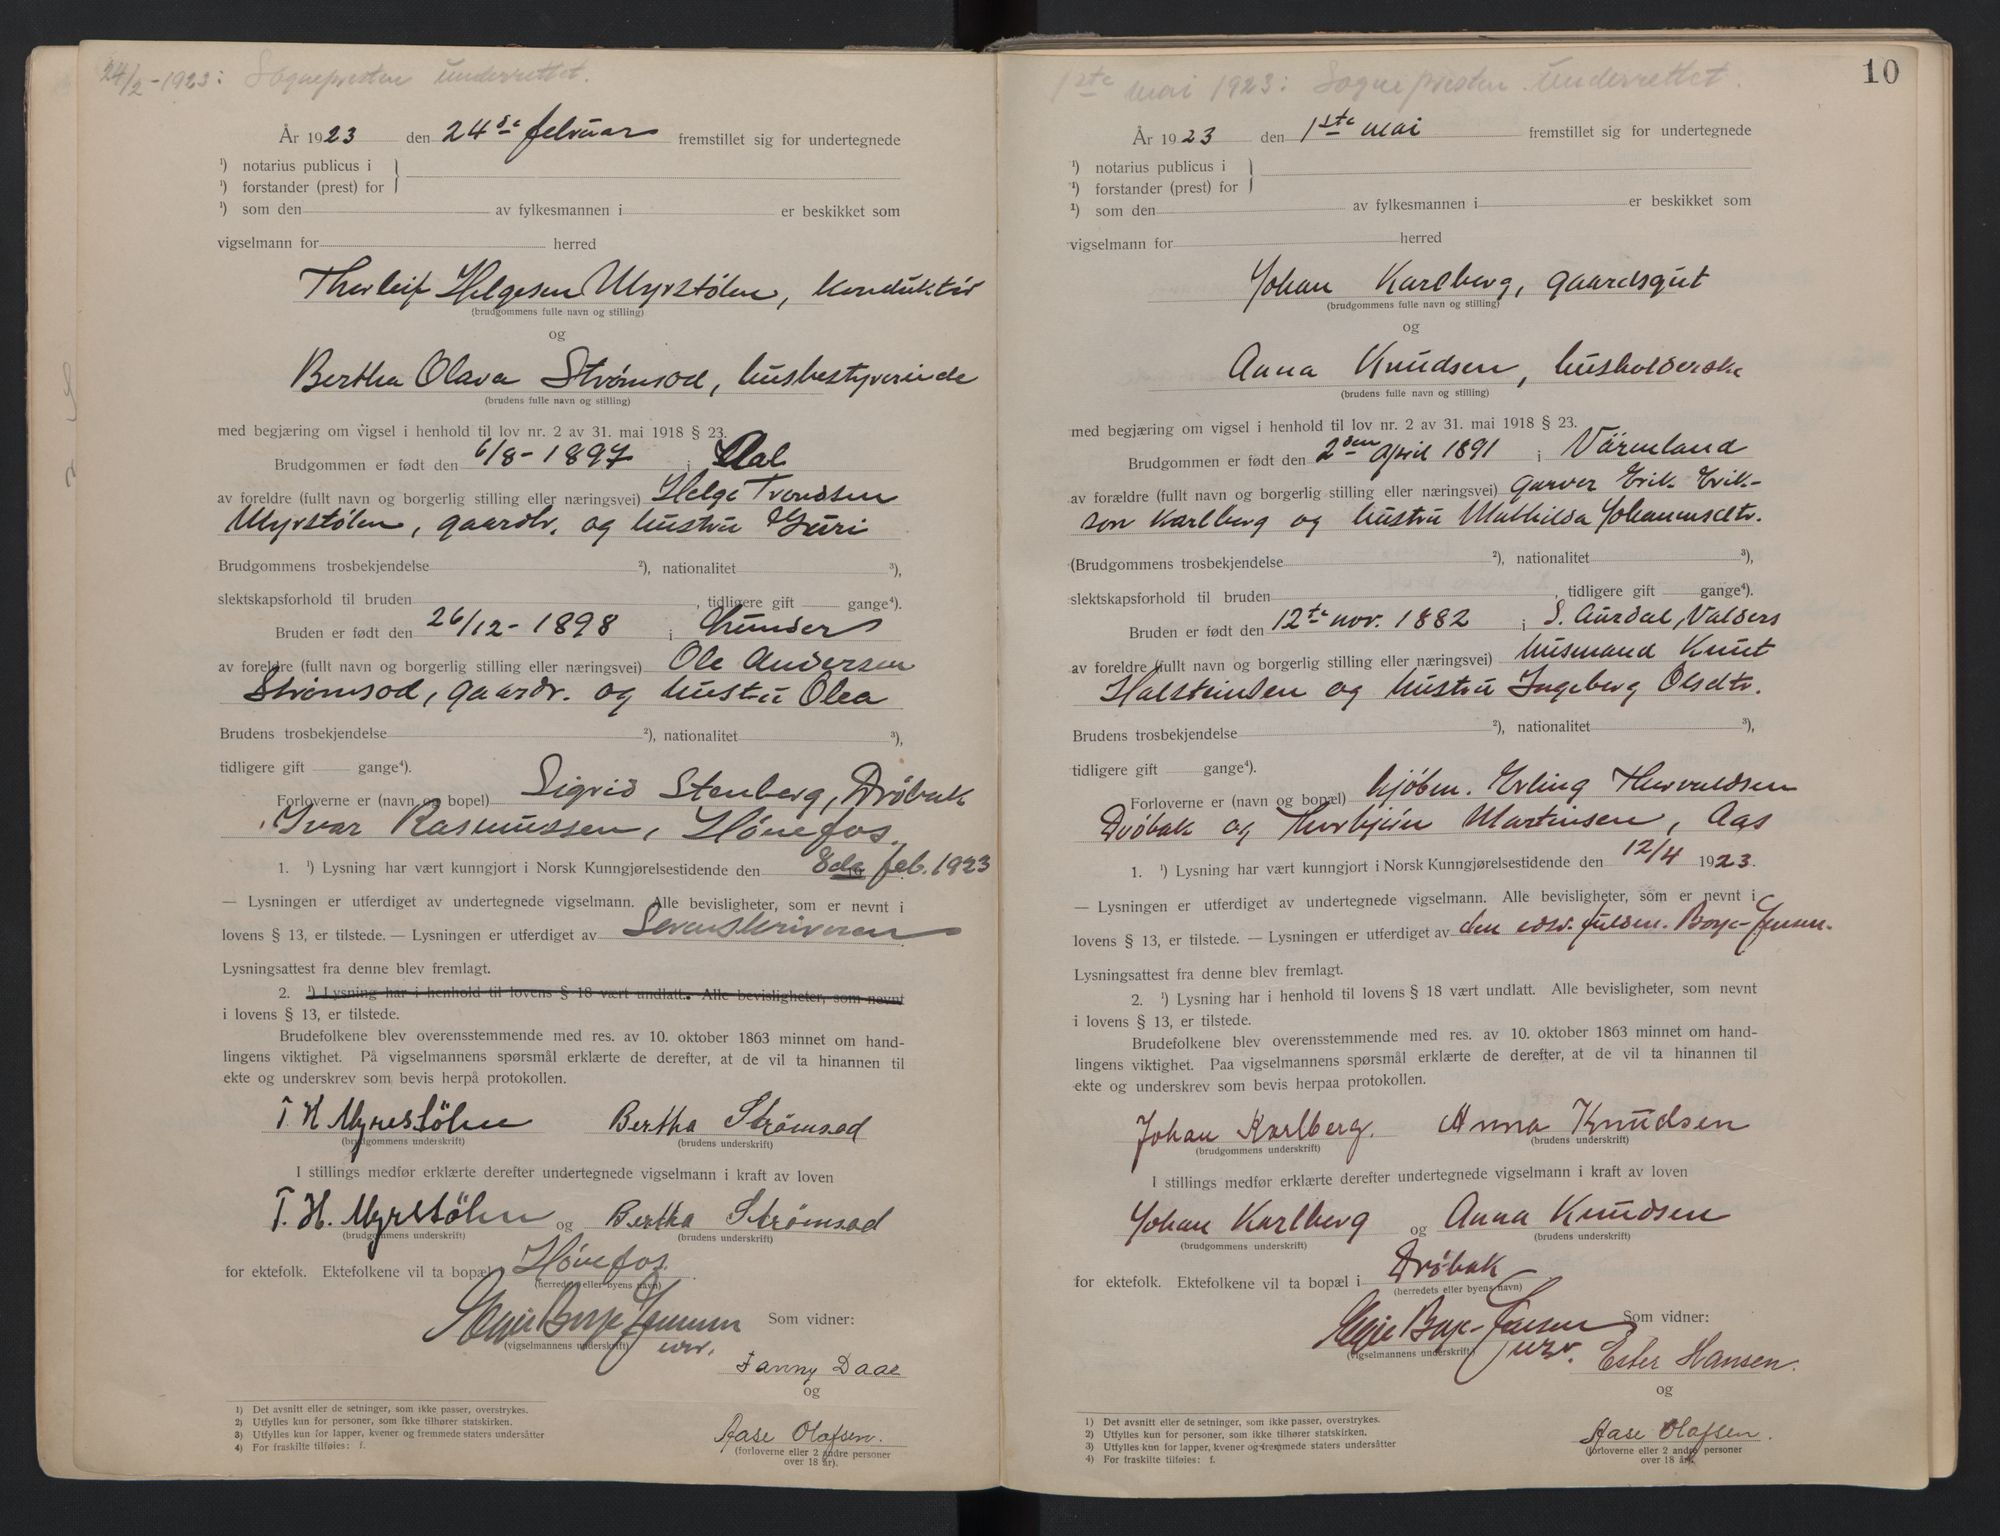 24/2-1923: Sognepresten underrettet.
År 1923 den 24de februar fremstillet sig for undertegnede
¹) notarius publicus i
¹) forstander (prest) for
¹) som den av fylkesmannen i er beskikket som
vigselmann for herred
Thorleif Helgesen Myrstølen, konduktør
(brudgommens fulle navn og stilling)
og
Bertha Olava Strømsod, husbestyrerinde
(brudens fulle navn og stilling)
med begjæring om vigsel i henhold til lov nr. 2 av 31. mai 1918 § 23.
Brudgommen er født den 6/8-1897 i Aal
av foreldre (fullt navn og borgerlig stilling eller næringsvei) Helge Trondsen
Myrstølen, gaardbr. og hustru Guri
Brudgommens trosbekjendelse ²), nationalitet ³),
slektskapsforhold til bruden , tidligere gift gange⁴).
Bruden er født den 26/12-1898 i
av foreldre (fullt navn og borgerlig stilling eller næringsvei) Ole Andersen
Strømsod, gaardbr. og hustru Olea
Brudens trosbekjendelse ²), nationalitet ³),
tidligere gift gange⁴).
Forloverne er (navn og bopel) Sigrid Stenberg, Drøbak
Ivar Rasmussen, Hønefos.
1. ¹) Lysning har vært kunngjort i Norsk Kunngjørelsestidende den 8de feb. 1923
— Lysningen er utferdiget av undertegnede vigselmann. Alle bevisligheter, som er nevnt i
lovens § 13, er tilstede. — Lysningen er utferdiget av Sorenskriveren
Lysningsattest fra denne blev fremlagt.
2. ¹) Lysning har i henhold til lovens § 18 vært undlatt. Alle bevisligheter, som nevnt
i lovens § 13, er tilstede.
Brudefolkene blev overensstemmende med res. av 10. oktober 1863 minnet om hand-
lingens viktighet. På vigselmannens spørsmål erklærte de derefter, at de vil ta hinannen til
ekte og underskrev som bevis herpå protokollen.
T. H Myrestölen Bertha Strømsod
(brudgommens underskrift) (brudens underskrift)
I stillings medfør erklærte derefter undertegnede vigselmann i kraft av loven
T. H. Myrstölen og Bertha Strømsod
(brudgommens underskrift) (brudens underskrift)
for ektefolk. Ektefolkene vil ta bopæl i Hønefos.
(herredets eller byens navn)
Borge Jensen Som vidner:
(vigselmannens underskrift)
Fanny Daae
og
Aase Olafsen.
(forloverne eller 2 andre personer
over 18 år).
1) Det avsnitt eller de setninger, som ikke passer, overstrykes.
2) Utfylles kun for personer, som ikke tilhører statskirken.
3) Utfylles kun for lapper, kvener og fremmede staters undersåtter
4) For fraskilte tilføies: f.
10
1ste mai 1923: Sognepresten underrettet.
År 1923 den 1ste mai fremstillet sig for undertegnede
¹) notarius publicus i
¹) forstander (prest) for
¹) som den av fylkesmannen i er beskikket som
vigselmann for herred
Johan Karlberg, gaardsgut
(brudgommens fulle navn og stilling)
og
Anna Knudsen, husholderske
(brudens fulle navn og stilling)
med begjæring om vigsel i henhold til lov nr. 2 av 31. mai 1918 § 23.
Brudgommen er født den 2den april 1891 i Värmland
av forældre (fullt navn og borgerlig stilling eller næringsvei) garver Erik Erik-
son Karlberg og hustru Mathilda Johannesdtr.
(Brudgommens trosbekjendelse ²), nationalitet ³),
slektskapsforhold til bruden , tidligere gift gange⁴).
Bruden er født den 12te nov. 1882 i S. Aurdal, Valders
av foreldre (fullt navn og borgerlig stilling eller næringsvei) husmand Knut
Halsteinsen og hustru Ingeborg Olsdtr.
Brudens trosbekjendelse ²), nationalitet ³),
tidligere gift gange⁴).
Forloverne er (navn og bopæl) kjøbm. Erling Thorvaldsen
Drøbak og Thorbjørn Martinsen, Aas
1. ¹) Lysning har vært kunngjort i Norsk Kunngjørelsestidende den 12/4 1923.
— Lysningen er utferdiget av undertegnede vigselmann. Alle bevisligheter, som er nevnt i
lovens § 13, er tilstede. — Lysningen er utferdiget av den edsv. fuldm. Borge-Jensen.
Lysningsattest fra denne blev fremlagt.
2. ¹) Lysning har i henhold til lovens § 18 vært undlatt. Alle bevisligheter, som nevnt
i lovens § 13, er tilstede.
Brudefolkene blev overensstemmende med res. av 10. oktober 1863 minnet om hand-
lingens viktighet. Paa vigselmannens spørsmål erklærte de derefter, at de vil ta hinannen til
ekte og underskrev som bevis herpaa protokollen.
Johan Karlberg. Anna Knudsen
(brudgommens underskrift) (brudens underskrift)
I stillings medfør erklærte derefter undertegnede vigselmann i kraft av loven
Johan Karlberg og Anna Knudsen
(brudgommens underskrift) (brudens underskrift)
for ektefolk. Ektefolkene vil ta bopæl i Drøbak
(herredets eller byens navn)
Borge-Jensen Som vidner:
(vigselmannens underskrift)
Ester Hansen.
og
Aase Olafsen.
(forloverne eller 2 andre personer
over 18 år).
1) Det avsnitt eller de setninger, som ikke passer, overstrykes.
2) Utfylles kun for personer, som ikke tilhører statskirken.
3) Utfylles kun for lapper, kvener og fremmede staters undersåtter
4) For fraskilte tilføies: f.